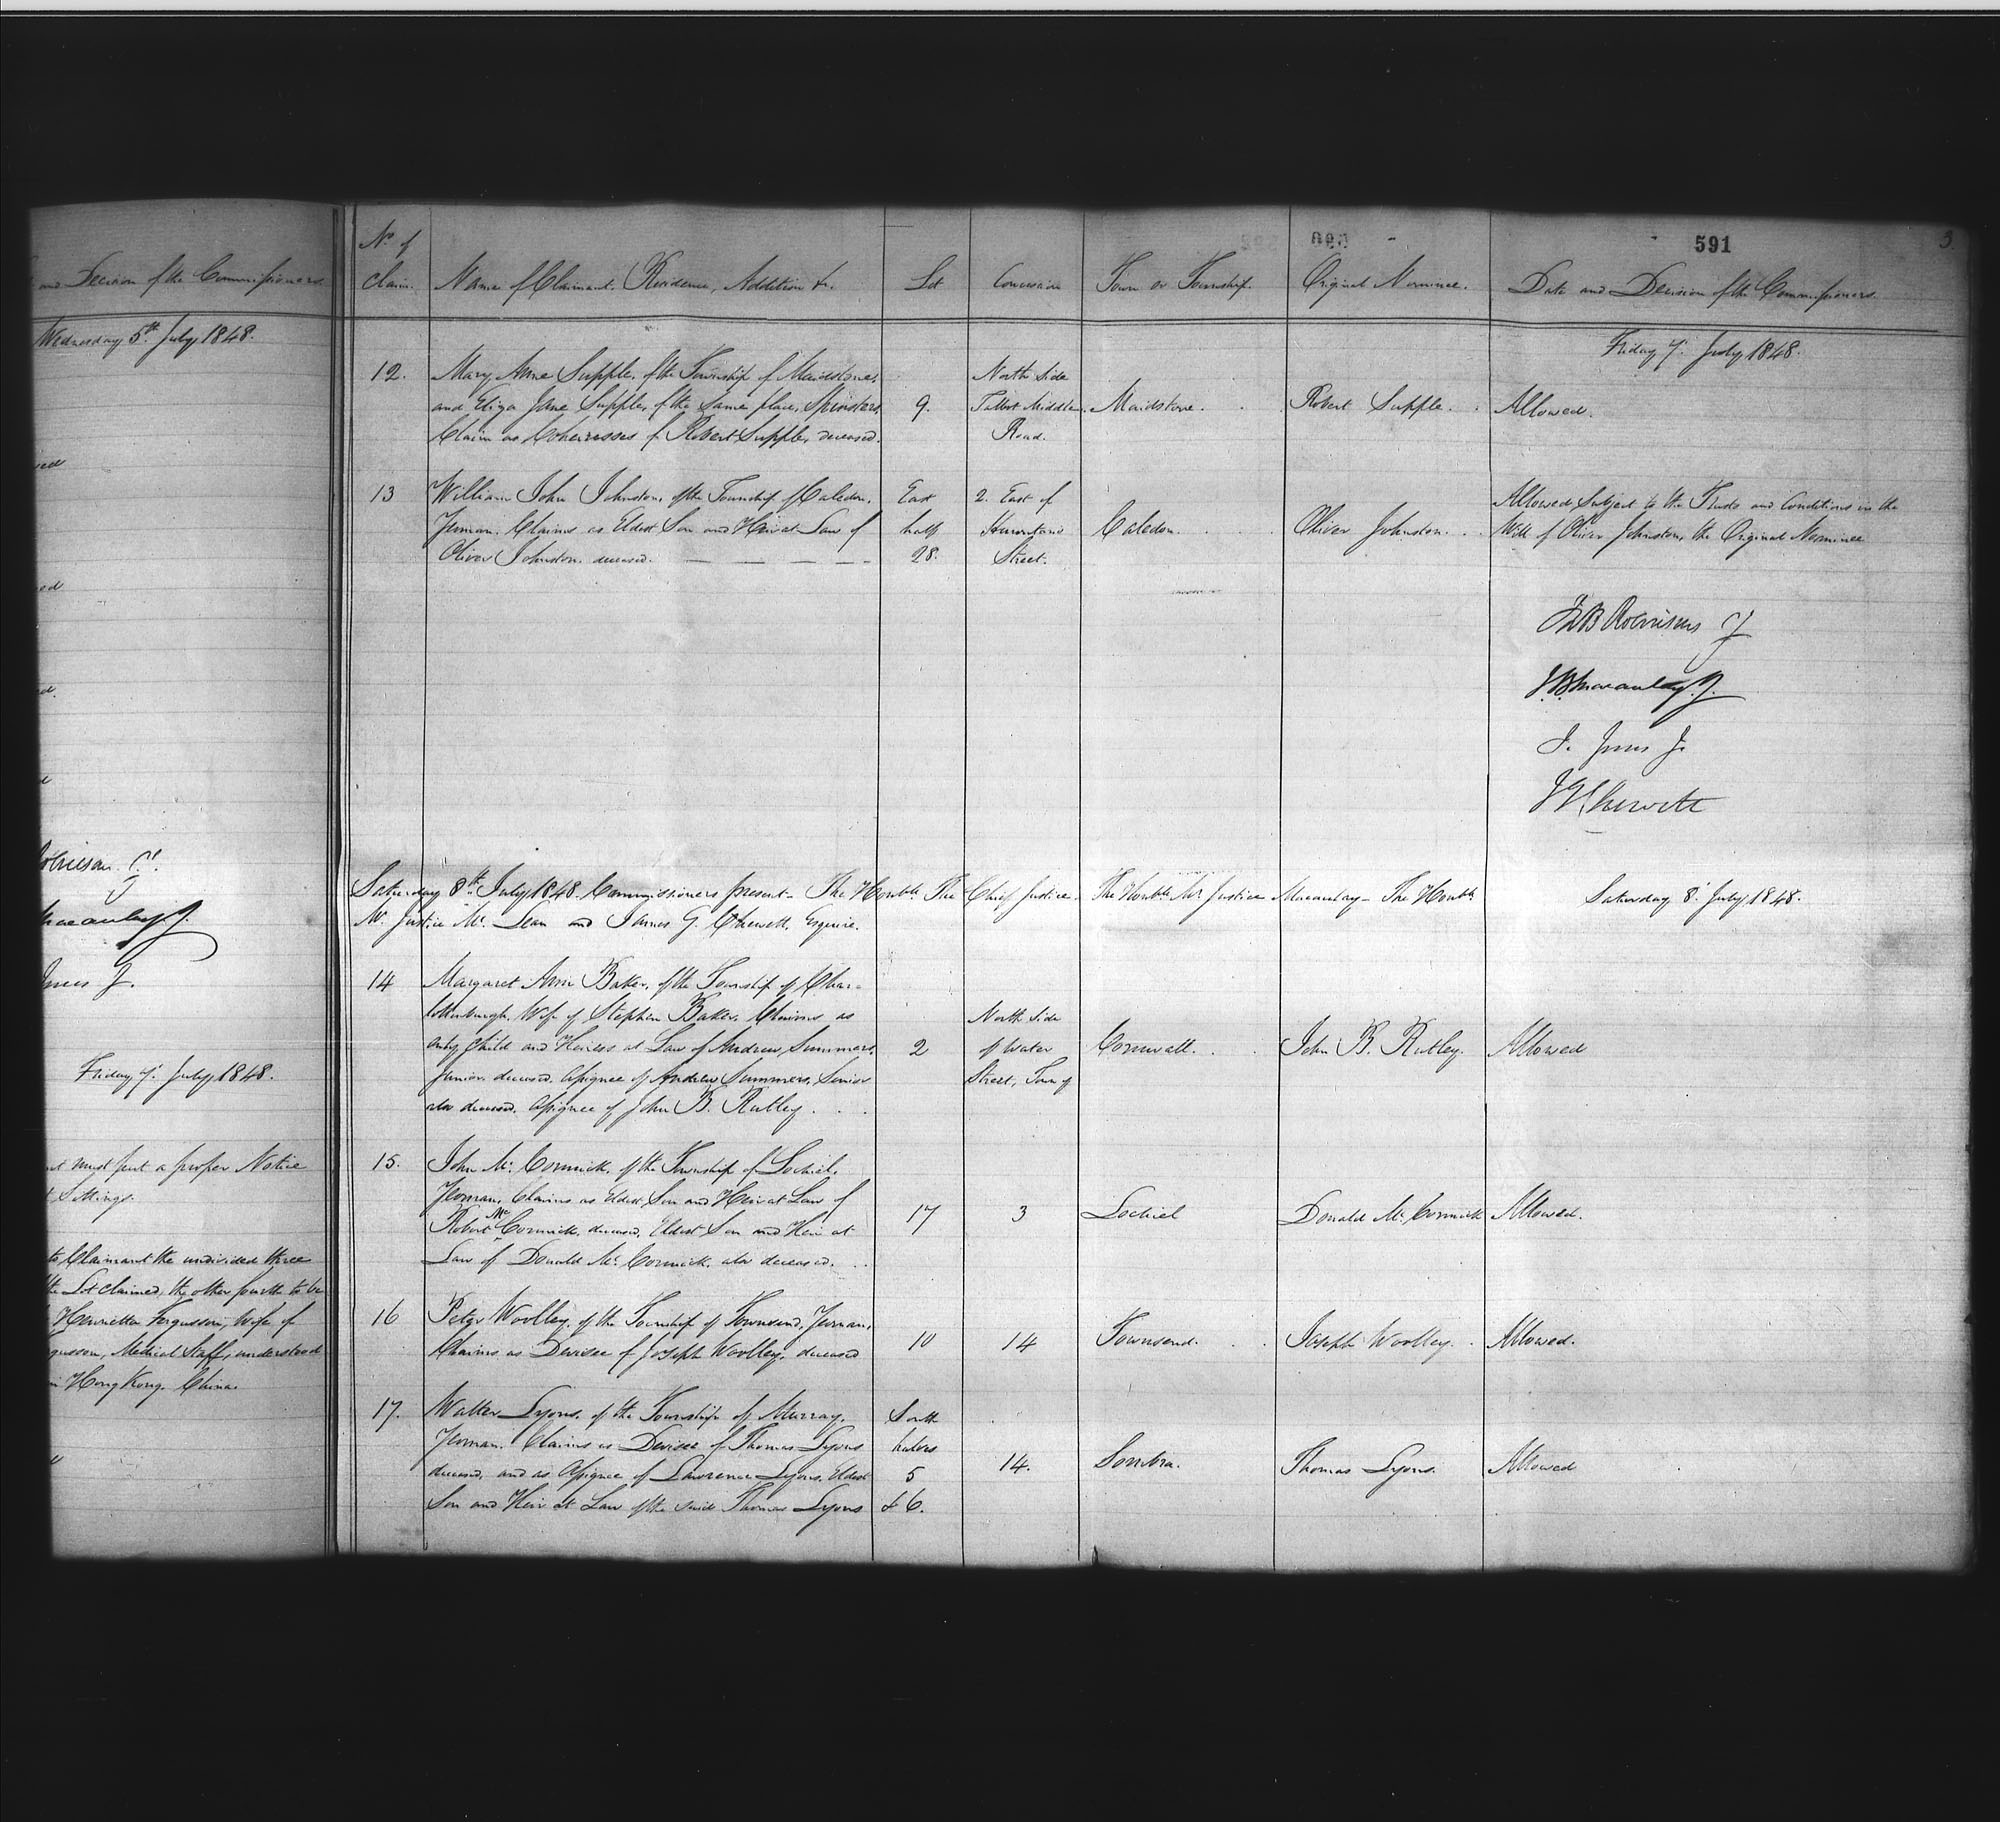 and Decision of the Commissioners.
Wednesday 5th July 1848.
Friday 7. July 1848.
must put a proper Notice
Sittings.
to Claimant the undivided three
the Lot claimed, the other fourth to be
Henrietta Fergusson, Wife of
Medical Staff, understood
in Hong Kong. China.
591
3.
No. of
Claim.
Name of Claimant, Residence, Addition &c.
Lot
Concession
Town or Township.
Original Nominee.
Date and Decision of the Commissioners.
Friday 7. July 1848.
12.
Mary Anne Supple, of the Township of Maidstone,
and Eliza Jane Supple, of the same place, Spinsters,
Claim as Coheiresses of Robert Supple, deceased.
9.
North Side
Talbot Middle
Road.
Maidstone.
Robert Supple.
Allowed.
13
William John Johnston, of the Township of Caledon,
Yeoman. Claims as Eldest Son and Heir at Law of
Oliver Johnston, deceased.
East
half
28.
2. East of
Hurontario
Street.
Caledon.
Oliver Johnston.
Allowed Subject to the Trusts and Conditions in the
Will of Oliver Johnston, the Original Nominee
Jno B Robinson CJ
J.B. Macaulay. J.
J. Jones J.
J G Chewett
Saturday 8th July 1848. Commissioners present - The Honble. The Chief Justice. The Honble Mr. Justice Macaulay - The Honble
Mr. Justice Mc. Lean and James G. Chewett, Esquire.
Saturday 8. July 1848.
14
Margaret Ann Baker, of the Township of Char-
lottenburgh, Wife of Stephen Baker. Claims as
only Child and Heiress at Law of Andrew Summers,
Junior, deceased, Assignee of Andrew Summers, Senior
also deceased. Assignee of John B. Rutley.
2
North Side
of Water
Street, Town of
Cornwall.
John B. Rutley.
Allowed
15.
John Mc. Cormick, of the Township of Lochiel,
Yeoman, Claims as Eldest Son and Heir at Law of
Robert Mc Cormick, deceased, Eldest Son and Heir at
Law of Donald Mc. Cormick, also deceased.
17
3
Lochiel
Donald Mc. Cormick
Allowed.
16
Peter Woolley, of the Township of Townsend, Yeoman,
Claims as Devisee of Joseph Woolley, deceased
10
14
Townsend.
Joseph Woolley.
Allowed.
17.
Walter Lyons, of the Township of Murray,
Yeoman. Claims as Devisee of Thomas Lyons
deceased, and as Assignee of Lawrence Lyons, Eldest
Son and Heir at Law of the said Thomas Lyons
South
halves
5
& 6.
14.
Sombra.
Thomas Lyons.
Allowed